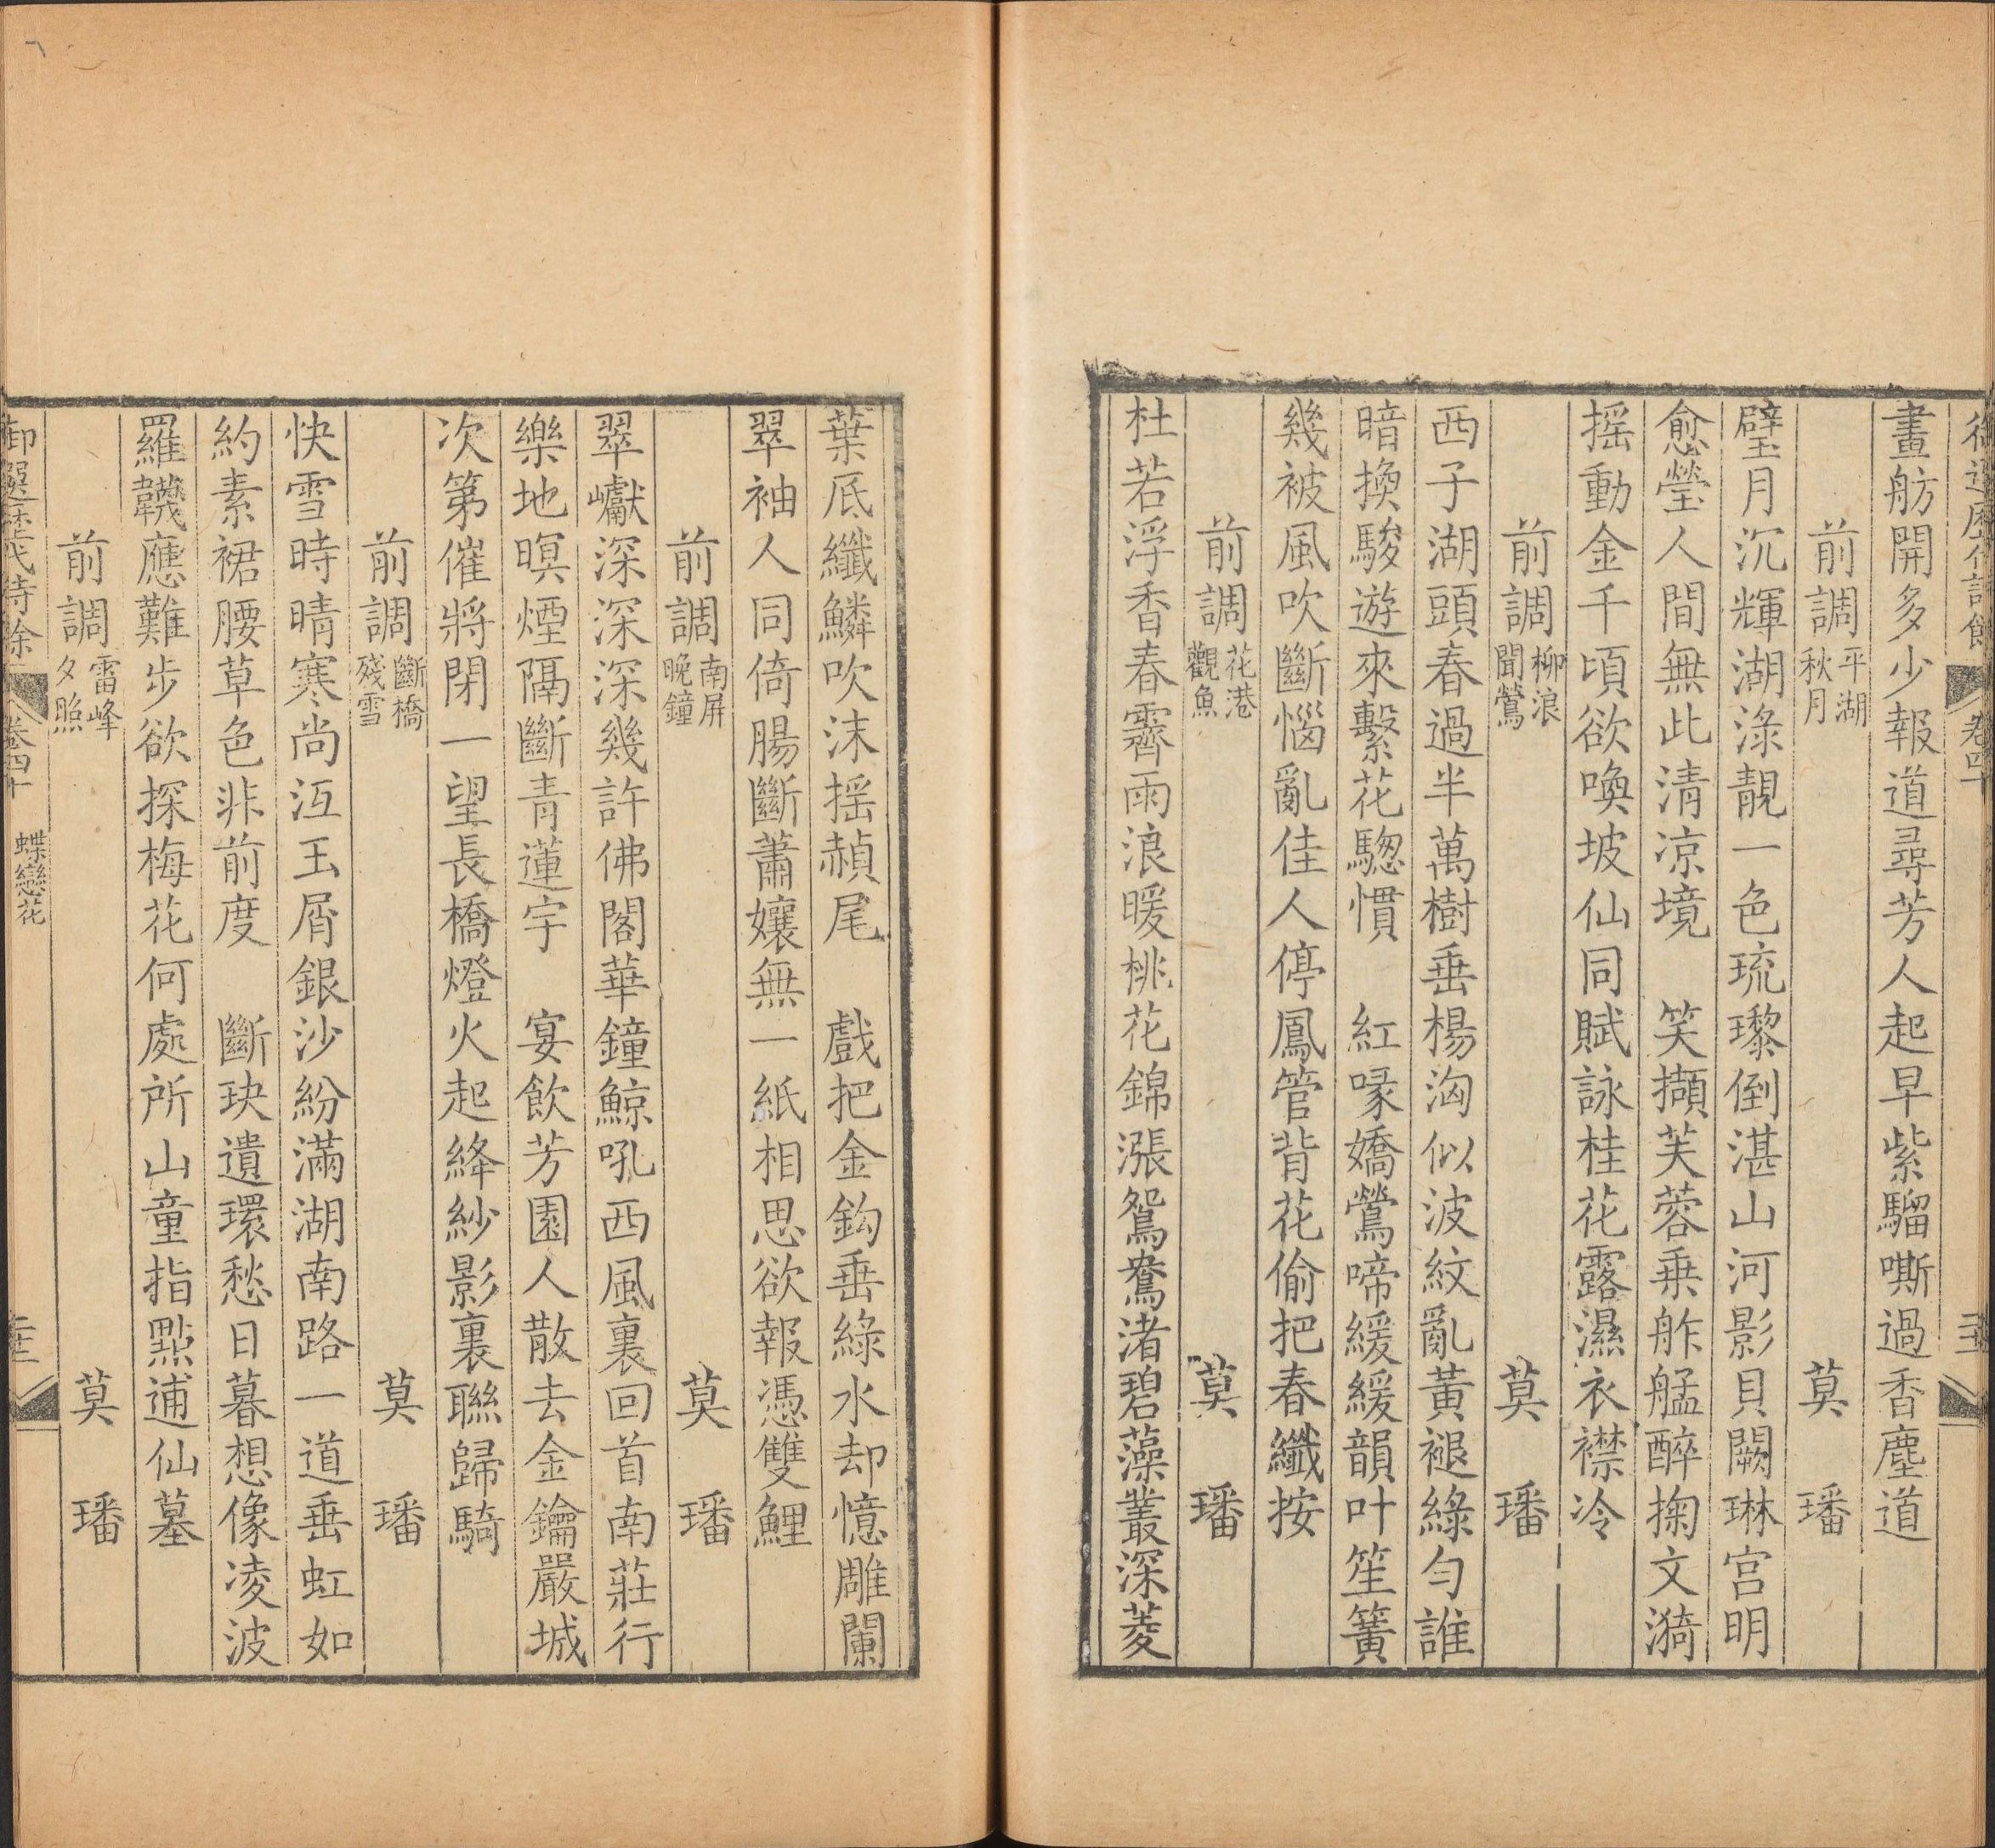 畫舫開多少報道尋芳人起早紫騮嘶過香塵道
前調平湖秋月　莫　璠
璧月沉輝湖淥靚一色琉瓈倒湛山河影貝闕琳宫明
愈瑩人間無此清凉境　笑擷芙蓉乗舴艋醉掬文漪
揺動金千頃欲喚坡仙同賦詠桂花露濕衣襟冷
前調柳浪聞鶯　莫　璠
西子湖頭春過半萬樹垂楊洶似波紋亂黃褪綠勻誰
暗換駿遊來繫花驄慣　紅喙嬌鶯啼緩緩韻叶笙簧
幾被風吹斷惱亂佳人停鳳管背花偷把春纖按
前調花港觀魚　莫　璠
杜若浮香春霽雨浪暖桃花錦漲鴛鴦渚碧藻叢深菱
葉底纖鱗吹沫揺赬尾　戲把金鈎垂綠水却憶雕闌
翠袖人同倚腸斷蕭孃無一紙相思欲報憑雙鯉
前調南屏晚鐘　莫　璠
翠巘深深深幾許佛閣華鐘鯨吼西風裏回首南莊行
樂地暝煙隔斷青蓮宇　宴飲芳園人散去金鑰嚴城
次第催將閉一望長橋燈火起絳紗影裏聯歸騎
前調斷橋殘雪　莫　璠
快雪時晴寒尚沍玉屑銀沙紛滿湖南路一道垂虹如
約素裙腰草色非前度　斷玦遺環愁日暮想像凌波
羅韈應難步欲探梅花何處所山童指點逋仙墓
前調雷峰夕照　莫　璠
卷四十　蝶戀花